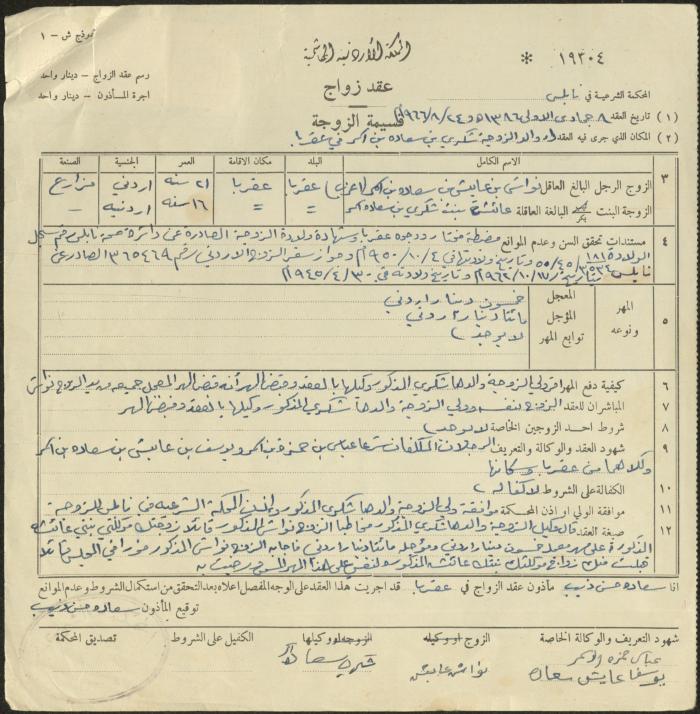 نموذج ش - ١
المملكة الأردنية الهاشمية
* ١٩٣٠٤
رسم عقد الزواج - دينار واحد
اجرة المأذون - دينار واحد
عقد زواج
قسيمة الزوجة
المحكمة الشرعية في نابلس
(١) تاريخ العقد ٨ جمادى الاولى ١٣٨٦ و ٢٤/٨/١٩٦٦م
(٢) المكان الذي جرى فيه العقد دار والد الزوجة شكري بن سعاده بن في عقربا
الاسم الكامل البلد مكان الاقامة العمر الجنسية الصنعة
٣ الزوج الرجل البالغ العاقل نواش بن عايش بن سعاده بن عقربا عقربا ٢١ سنه اردني مزارع
الزوجة البنت بكر البالغة العاقلة عائشة بنت شكري بن سعاده = = ١٦ سنه اردنيه -
٤ مستندات تحقق السن وعدم الموانع مضبطة مختار ووجوه عقربا وشهادة ولادة الزوجة الصادرة عن دائرة صحة نابلس رقم سجل
الولادة وتاريخ ولادتها في ٤/١٠/١٩٥٠م وجواز سفر الزوج الاردني رقم ٣٦٥٤٦٩ الصادر عن
نابلس بتاريخ ١٧/١٠/١٩٦٢م وتاريخ ولادته في ١٩٤٥م
٥ المهر ونوعه
المعجل خمسون دينار اردني
المؤجل مائتا دينار اردني
توابع المهر لا يوجد
٦ كيفية دفع المهر اقر ولي الزوجة والدها شكري المذكور وكيلها بالعقد وقبض المهر أنه قبض المهر المعجل جميعه من يد الزوج نواش
٧ المباشران للعقد الزوج بنفسه وولي الزوجة والدها شكري المذكور وكيلها بالعقد وقبض المهر
٨ شروط احد الزوجين الخاصة لا يوجد
٩ شهود العقد والوكالة والتعريف الرجلان المكلفان شرعا عباس بن حمزة بن ويوسف بن عايش بن سعاده بن
وكلاهما من عقربا وسكانها
١٠ الكفالة على الشروط لا كفالة
١١ موافقة الولي او اذن المحكمة موافقة ولي الزوجة والدها شكري المذكور واذن المحكمة الشرعيه في نابلس للزوجة
١٢ صيغة العقد قال وكيل الزوجة والدها شكري المذكور مخاطبا الزوج نواش المذكور قائلا زوجتك موكلتي بنتي عائشه
المذكورة على مهر معجل خمسون دينار اردني ومؤجله مائتا دينار اردني فاجابه الزوج نواش المذكور فورا في المجلس قائلا
قبلت منك زواج موكلتك بنتك عائشه المذكوره لنفسي على هذا المهر المسمى ورضيت به
انا سعاده حسن ذيب مأذون عقد الزواج في عقربا. قد اجريت هذا العقد على الوجه المفصل اعلاه بعد التحقق من استكمال الشروط وعدم الموانع
توقيع المأذون سعاده حسن ذيب
شهود التعريف والوكالة الخاصة الزوج او وكيله الزوجة او وكيلها الكفيل على الشروط تصديق المحكمة
عباس حمزه
يوسف عايش سعاده
نواش عايش
شكري سعاده